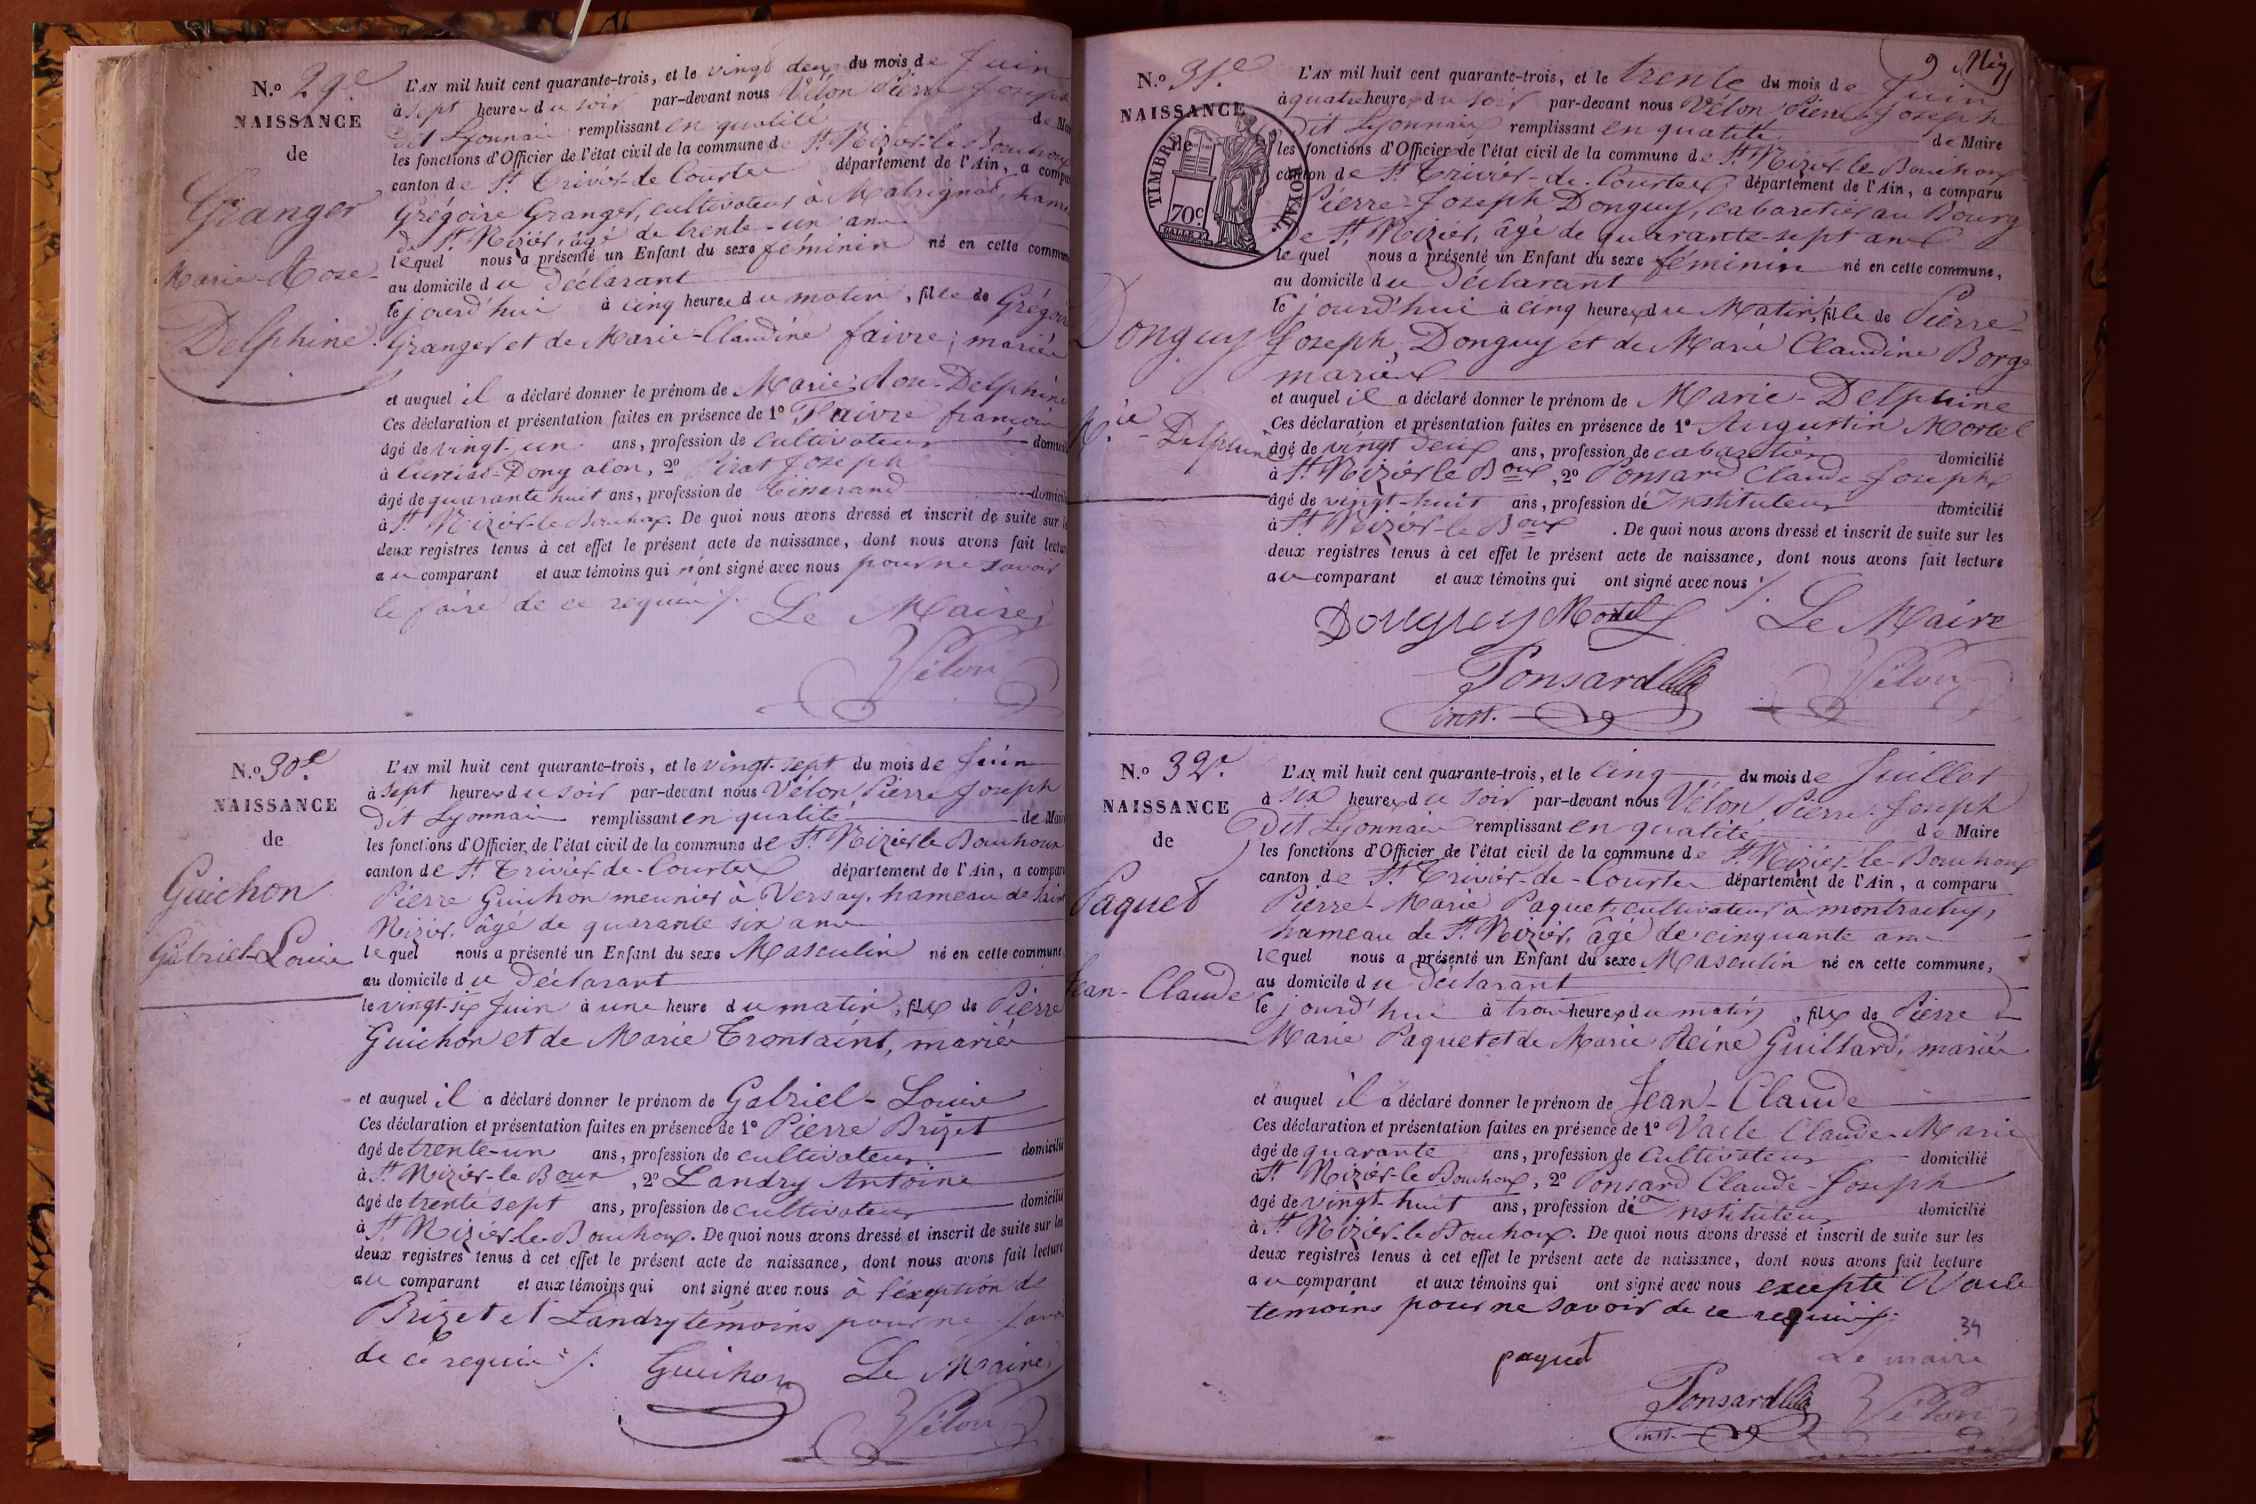 N.º 29.e
NAISSANCE
de
Granger
Marie-Rose-
Delphine
L'AN mil huit cent quarante-trois, et le vingt deux du mois de Juin
à sept heures du soir par-devant nous Vélon Pierre Joseph
dit Lyonnais remplissant en qualité de Mai
les fonctions d'Officier de l'état civil de la commune de St. Nizier-le-Bouchoux
canton de St. Trivier-de-Courtes département de l'Ain, a compa
Grégoire Granger, cultivateur à Matrignat, hame
de St. Nizier, âgé de trente-un ans
lequel nous a présenté un Enfant du sexe féminin né en cette commun
au domicile du Déclarant
le jourd'hui à cinq heures du matin, fille de Grégoire
Granger et de Marie-Claudine faivre, mariés
et auquel il a déclaré donner le prénom de Marie-Rose-Delphine
Ces déclaration et présentation faites en présence de 1º Faivre françois
âgé de vingt-un ans, profession de cultivateur domici
à Curciat-Dongalon, 2º Pirat Joseph
âgé de quarante huit ans, profession de Tisserand domicil
à St. Nizier-le-Bouchoux. De quoi nous avons dressé et inscrit de suite sur l
deux registres tenus à cet effet le présent acte de naissance, dont nous avons fait lectu
au comparant et aux témoins qui n'ont signé avec nous pour ne savoir
le faire de ce requis ./.
Le Maire
Vélon
N.º 30.e
NAISSANCE
de
Guichon
Gabriel-Louis
L'AN mil huit cent quarante-trois, et le vingt-sept du mois de Juin
à sept heures du soir par-devant nous Vélon Pierre Joseph
Dit Lyonnais remplissant en qualité de Mair
les fonctions d'Officier de l'état civil de la commune de St. Nizier le Bouchoux
canton de St. Trivier-de-Courtes département de l'Ain, a compar
Pierre Guichon meunier à Versay, hameau de Saint
Nizier, âgé de quarante six ans
lequel nous a présenté un Enfant du sexe Masculin né en cette commune
au domicile du Déclarant
le vingt-six Juin à une heure du matin, fils de Pierre
Guichon et de Marie Trontaint, mariés
et auquel il a déclaré donner le prénom de Gabriel-Louis
Ces déclaration et présentation faites en présence de 1º Pierre Brizet
âgé de trente-un ans, profession de cultivateur domicilié
à St. Nizier-le Boux, 2º Landry Antoine
âgé de trente sept ans, profession de cultivateur domicilié
à St. Nizier-le-Bouchoux. De quoi nous avons dressé et inscrit de suite sur les
deux registres tenus à cet effet le présent acte de naissance, dont nous avons fait lecture
au comparant et aux témoins qui ont signé avec nous à l'éxeption de
Brizet et Landry témoins pour ne savoir
de ce requis ./.
Guichon
Le Maire
Vélon
9 
N.º 31.e
NAISSANCE
de
TIMBRE ROYAL.
70c
Donguy
Mie-Delphine
L'AN mil huit cent quarante-trois, et le trente du mois de Juin
à quatre heures du soir par-devant nous Vélon Pierre Joseph
Dit Lyonnais remplissant en qualité de Maire
les fonctions d'Officier de l'état civil de la commune de St. Nizier-le-Bouchoux
canton de St. Trivier-de-Courtes, département de l'Ain, a comparu
Pierre-Joseph Donguy, cabaretier au Bourg
De St. Nizier, âgé de quarante-sept ans
lequel nous a présenté un Enfant du sexe féminin né en cette commune,
au domicile du Déclarant
le jourd'hui à cinq heures du Matin, fille de Pierre-
Joseph Donguy et de Marie Claudine Borge
mariés
et auquel il a déclaré donner le prénom de Marie-Delphine
Ces déclaration et présentation faites en présence de 1º Augustin Morel
âgé de vingt deux ans, profession de cabaretier domicilié
à St. Nizier le Boux, 2º Ponsard Claude-Joseph
âgé de vingt-huit ans, profession de Instituteur domicilié
à St. Nizier-le Boux. De quoi nous avons dressé et inscrit de suite sur les
deux registres tenus à cet effet le présent acte de naissance, dont nous avons fait lecture
au comparant et aux témoins qui ont signé avec nous ./.
Donguy Morel
Le Maire
Ponsard
inst.
Vélon
N.º 32.e
NAISSANCE
de
Paquet
Jean-Claude
L'AN mil huit cent quarante-trois, et le cinq du mois de Juillet
à six heures du soir par-devant nous Vélon Pierre-Joseph
Dit Lyonnais remplissant en qualité de Maire
les fonctions d'Officier de l'état civil de la commune de St. Nizier-le-Bouchoux
canton de St. Trivier-de-Courtes département de l'Ain, a comparu
Pierre-Marie Paquet, cultivateur à montrachy,
hameau de St. Nizier, âgé de cinquante ans
lequel nous a présenté un Enfant du sexe Masculin né en cette commune,
au domicile du Déclarant
le jourd'hui à trois heures du matin, fils de Pierre
Marie Paquet et de Marie Reine Guillard, mariés
et auquel il a déclaré donner le prénom de Jean-Claude
Ces déclaration et présentation faites en présence de 1º Vacle Claude-Marie
âgé de quarante ans, profession de Cultivateur domicilié
à St. Nizier-le Bouchoux, 2º Ponsard Claude-Joseph
âgé de vingt-huit ans, profession de Instituteur domicilié
à St. Nizier-le Bouchoux. De quoi nous avons dressé et inscrit de suite sur les
deux registres tenus à cet effet le présent acte de naissance, dont nous avons fait lecture
au comparant et aux témoins qui ont signé avec nous excepté Vacle
temoins pour ne savoir de ce requis ./.
34
paquet
Le maire
Ponsard
inst.
Vélon